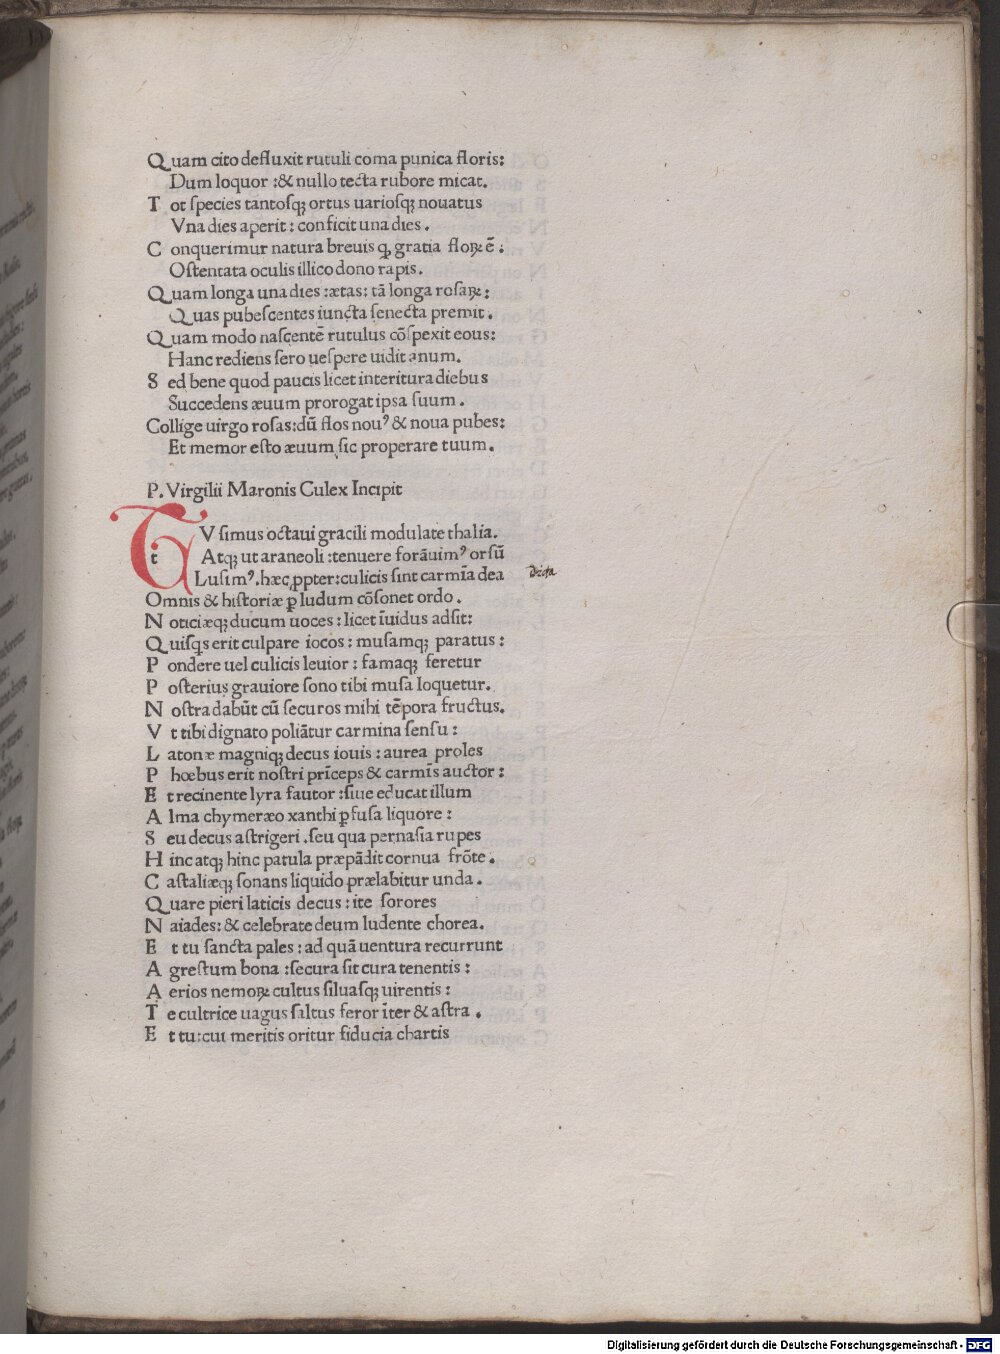 Quam cito defluxit rutuli coma punica floris:
Dum loquor :& nullo tecta rubore micat.
Tot species tãntosqꝫ ortus uariosqꝫ nouatus
Vna dies aperit : conficit una dies .
Conquerimur natura breuis ꝙ gratia floꝝ ẽ :
Ostentata oculis illico dono rapis .
Quam longa una dies :ætas: tã longa rosaꝝ :
Quas pubescentes iuncta senecta premit .
Quam modo nascentẽ rutulus cõspexit eous:
Hanc rediens sero uespere uidit anum.
Sed bene quod paucis licet interitura diebus
Succedens æuum prorogat ipsa suum .
Collige uirgo rosas:dũ flos nouꝰ & noua pubes:
Et memor esto æuum sic properare tuum.
P. Virgilii Maronis Culex Incipit
t
VSimus octaui gracili modulate thalia.
Atqꝫ ut araneoli :tenuere forãuimꝰ orsũ
Lusimꝰ. hæc ꝓpter:culicis sint carmĩa dea
Dicta
Omnis & historiæ ꝑ ludum cõsonet ordo .
Noticiæqꝫ ducum uoces : licet ĩuidus adsit:
Quisqs erit culpare iocos : musamqꝫ paratus :
Pondere uel culicis leuior : famaqꝫ feretur
Posterius grauiore sono tibi musa loquetur.
Nostra dabũt cũ securos mihi tẽpora fructus.
Vt tibi dignato poliãtur carmina sensu :
Latonæ magniqꝫ decus iouis : aurea proles
Phœbus erit nostri prĩceps & carmĩs auctor :
Et recinente lyra fautor :siue educat illum
Alma chymeræo xanthi ꝑfusa liquore :
Seu decus astrigeri .seu qua pernasia rupes
Hinc atqꝫ hinc patula præpãdit cornua frõte .
Castaliæqꝫ sonans liquido prælabitur unda .
Quare pieri laticis decus : ite sorores
Naiades: & celebrate deum ludente chorea.
Et tu sancta pales : ad quã uentura recurrunt
Agrestum bona :secura sit cura tenentis :
Aerios nemoꝝ cultus siluasqꝫ uirentis :
Te cultrice uagus saltus feror ĩter & astra .
Et tu:cui meritis oritur fiducia chartis
Digitalisierung gefördert durch die Deutsche Forschungsgemeinschaft - DFG